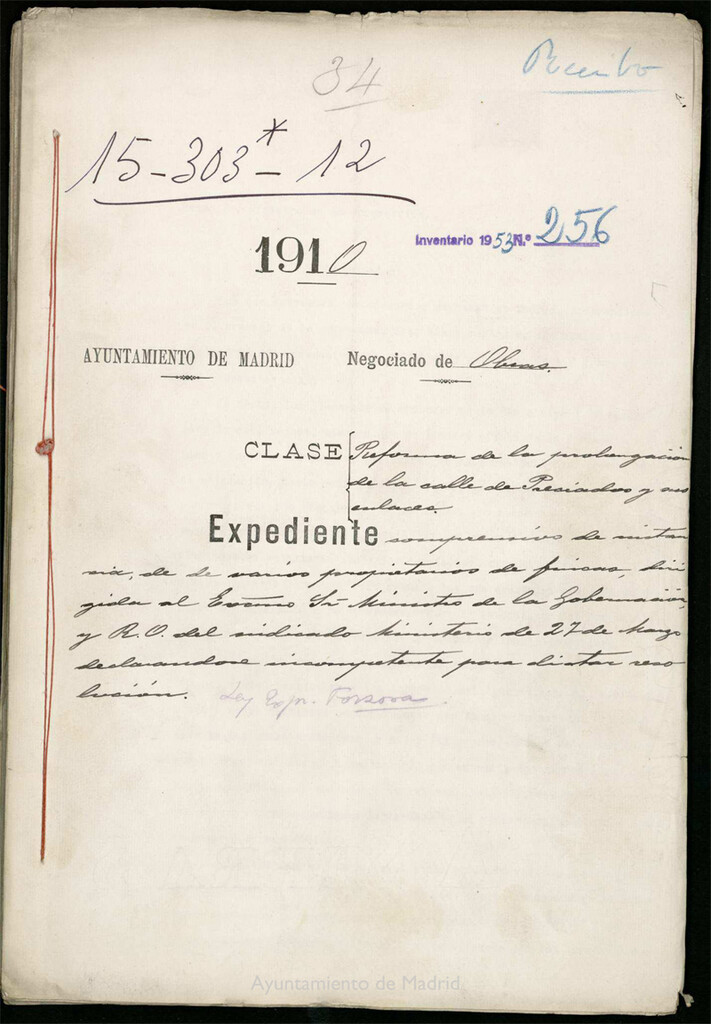 34
Recibo
15-303*-12
1910
Inventario 1953 N.º 256
AYUNTAMIENTO DE MADRID
Negociado de Obras.
CLASE Reforma de la prolongación
de la calle de Preciados y sus
enlaces.
Expediente comprensivo de instan
cia, de de varios propietarios de fincas, diri
gida al Excmo Sr Ministro de la Gobernación,
y R.O. del indicado Ministerio de 27 de Marzo
declarandose incompetente para dictar reso
lución. Ley Expr. Forzosa.
Ayuntamiento de Madrid